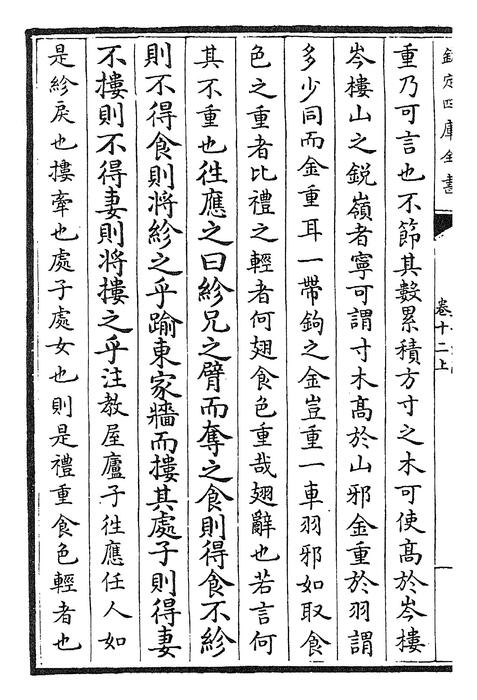 欽定四庫全書
卷十二上
重乃可言也不節其數累積方寸之木可使髙於岑樓
岑樓山之鋭嶺者寧可謂寸木髙於山邪金重於羽謂
多少同而金重耳一帶鉤之金豈重一車羽邪如取食
色之重者比禮之輕者何翅食色重哉翅辭也若言何
其不重也徃應之曰紾兄之臂而奪之食則得食不紾
則不得食則將紾之乎踰東家牆而摟其處子則得妻
不摟則不得妻則將摟之乎注教屋廬子徃應任人如
是紾戾也摟牽也處子處女也則是禮重食色輕者也